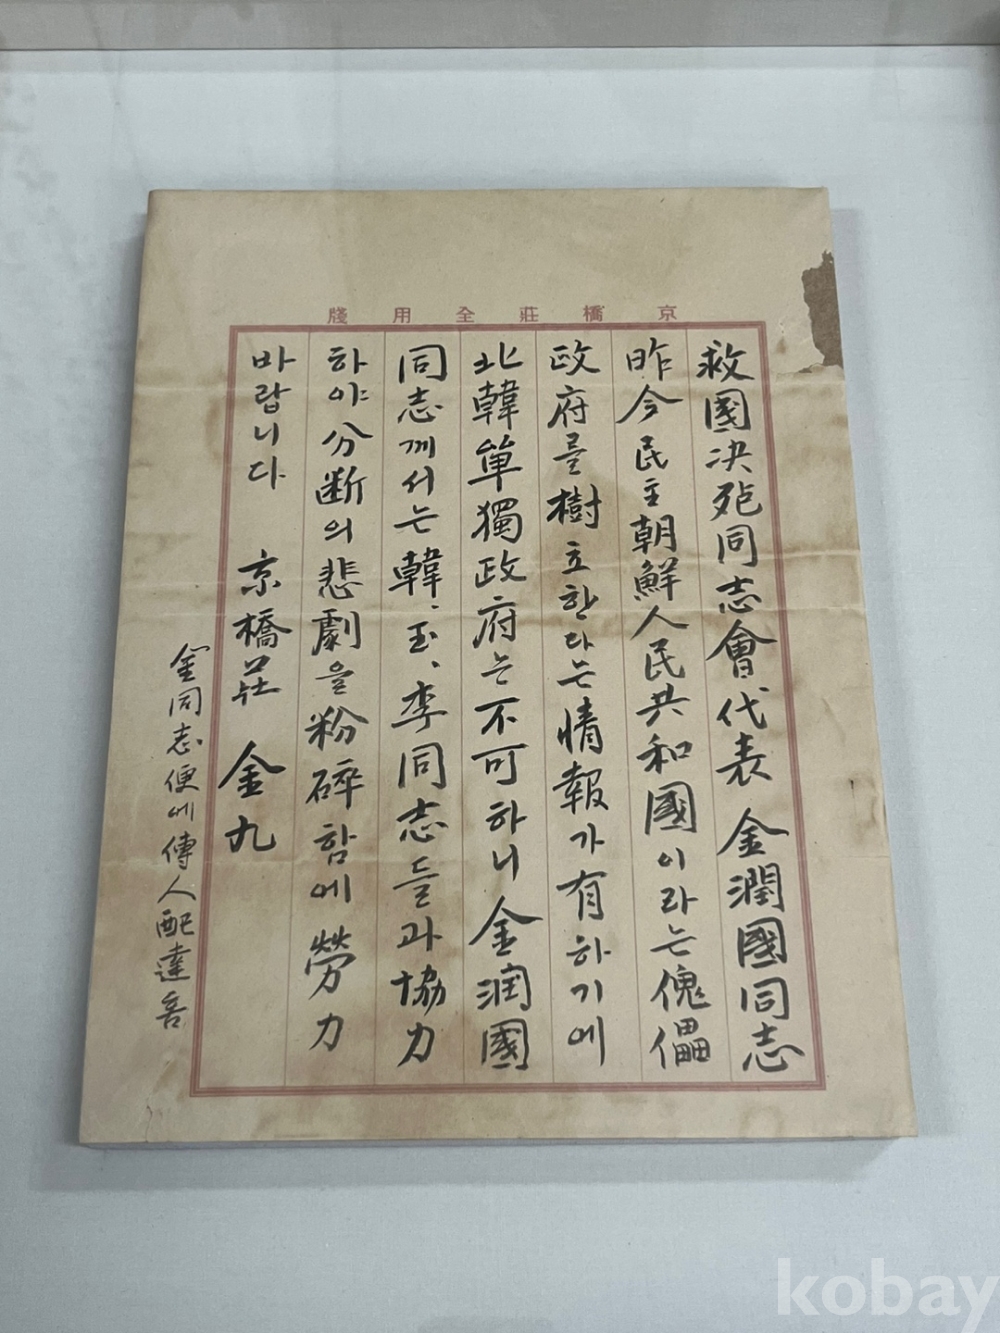 京橋莊全用牋
救國决死同志會代表 金潤國同志
昨今民主朝鮮人民共和國이라는傀儡
政府를樹立한다는情報가有하기에
北韓單獨政府는不可하니金润國
同志께서는韓、玉、李同志들과協力
하야分断의悲劇을粉碎함에勞力
바랍니다 京橋莊 金九
金同志便에傳人配達
kobay